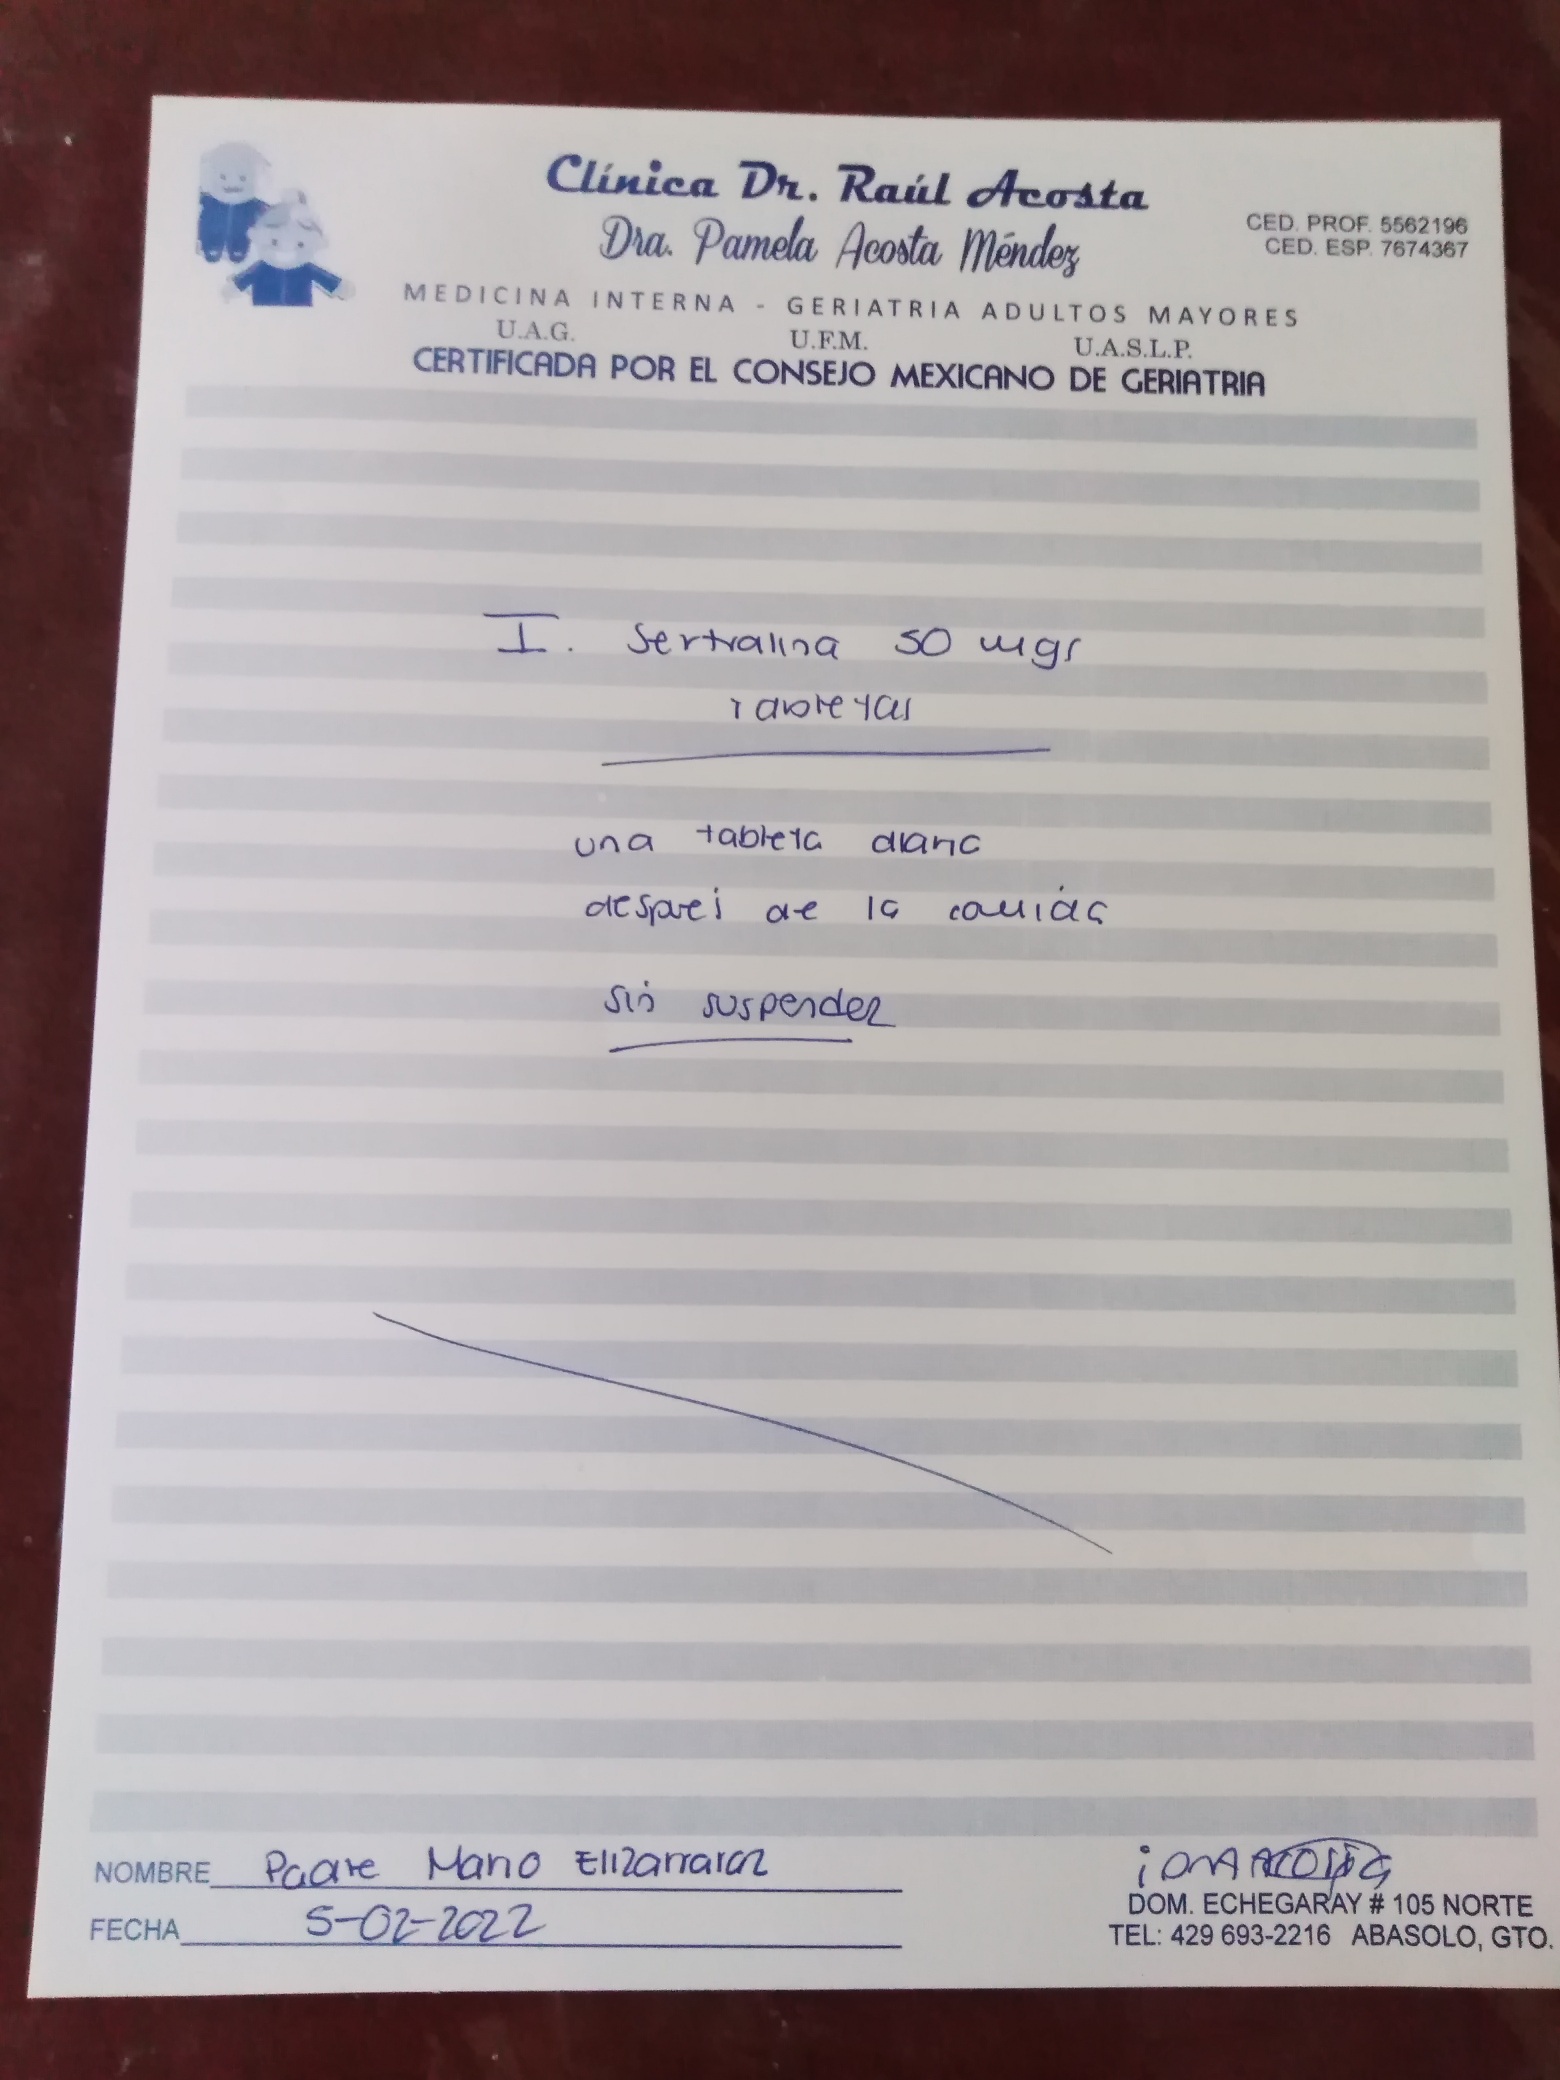 Clínica Dr. Raúl Acosta
Dra. Pamela Acosta Méndez
CED. PROF. 5562196
CED. ESP. 7674367
MEDICINA INTERNA - GERIATRIA ADULTOS MAYORES
U.A.G. U.F.M. U.A.S.L.P.
CERTIFICADA POR EL CONSEJO MEXICANO DE GERIATRIA
I. Sertralina 50 mgs
Tabletas
una tableta diaria
después de la comida
sin suspender
NOMBRE Padre Mario Elizarraraz
FECHA 5-02-2022
DOM. ECHEGARAY # 105 NORTE
TEL: 429 693-2216 ABASOLO, GTO.